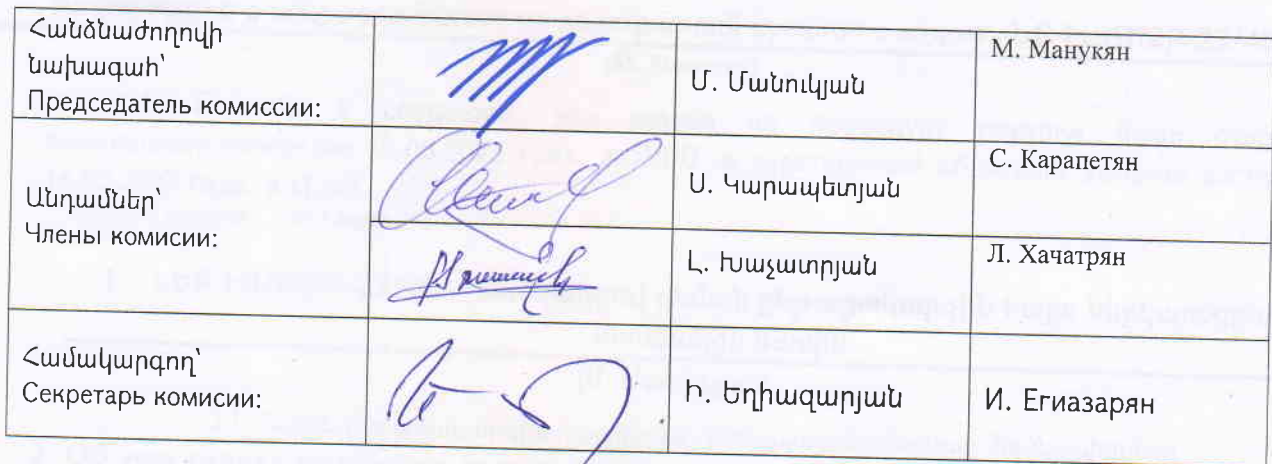 Հանձնաժողովի
նախագահ՝
Председатель комиссии:
Մ. Մանուկյան
М. Манукян
Անդամներ՝
Члены комисии:
Ս. Կարապետյան
С. Карапетян
Լ. Խաչատրյան
Л. Хачатрян
Համակարգող՝
Секретарь комисии:
Ի. Եղիազարյան
И. Егиазарян